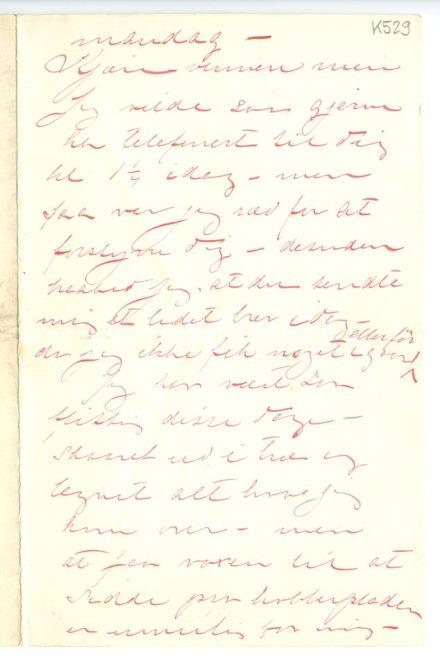 K529
mandag –
Kjære vennen min
Jeg vilde saa gjerne
ha telefonert til dig
kl 1½ idag – men
saa var jeg ræd for at
forstyrre dig – desuden
haabed jeg, at du sendte
mig et lidet brev idag –
da jeg ikke fik noget igaar
eller før
Jeg har vært saa
flittig disse dage –
skaaret ud i træ og
tegnet alt hvad jeg
kom over – men
at faa voxen til at
sidde paa kobberpladen
er umulig for mig –